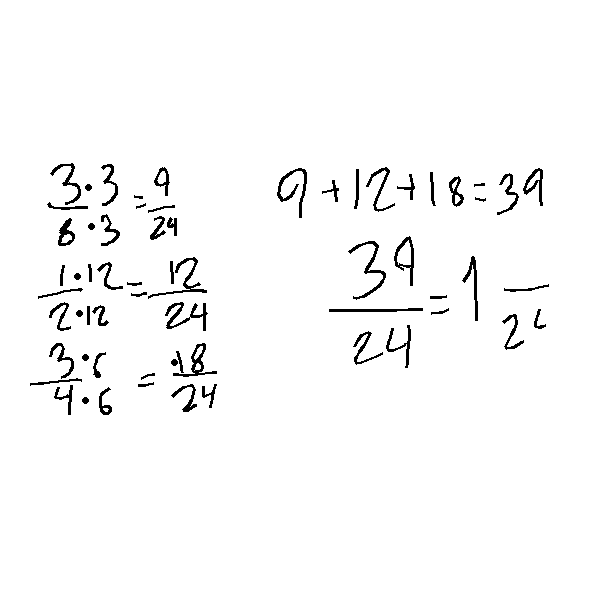 3·3/8·3 = 9/24
1·12/2·12 = 12/24
3·6/4·6 = ·18/24
9+12+18=39
39/24 = 1 /24